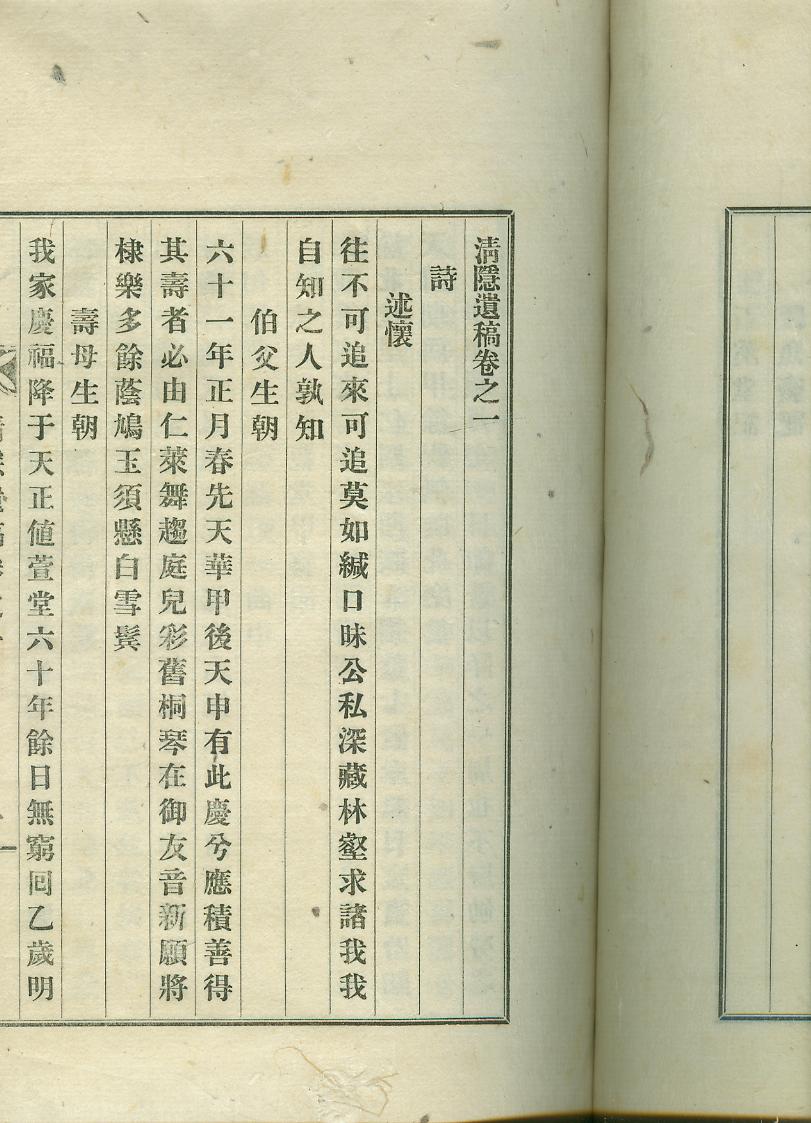 清隱遺稿卷之一
詩
述懷
往不可追來可追莫如緘口昧公私深藏林壑求諸我我
自知之人孰知
伯父生朝
六十一年正月春先天華甲後天申有此慶兮應積善得
其壽者必由仁萊舞趨庭兒彩舊桐琴在御友音新願將
棣樂多餘蔭鳩玉須懸白雪鬂
壽母生朝
我家慶福降于天正値萱堂六十年餘日無窮回乙歲明